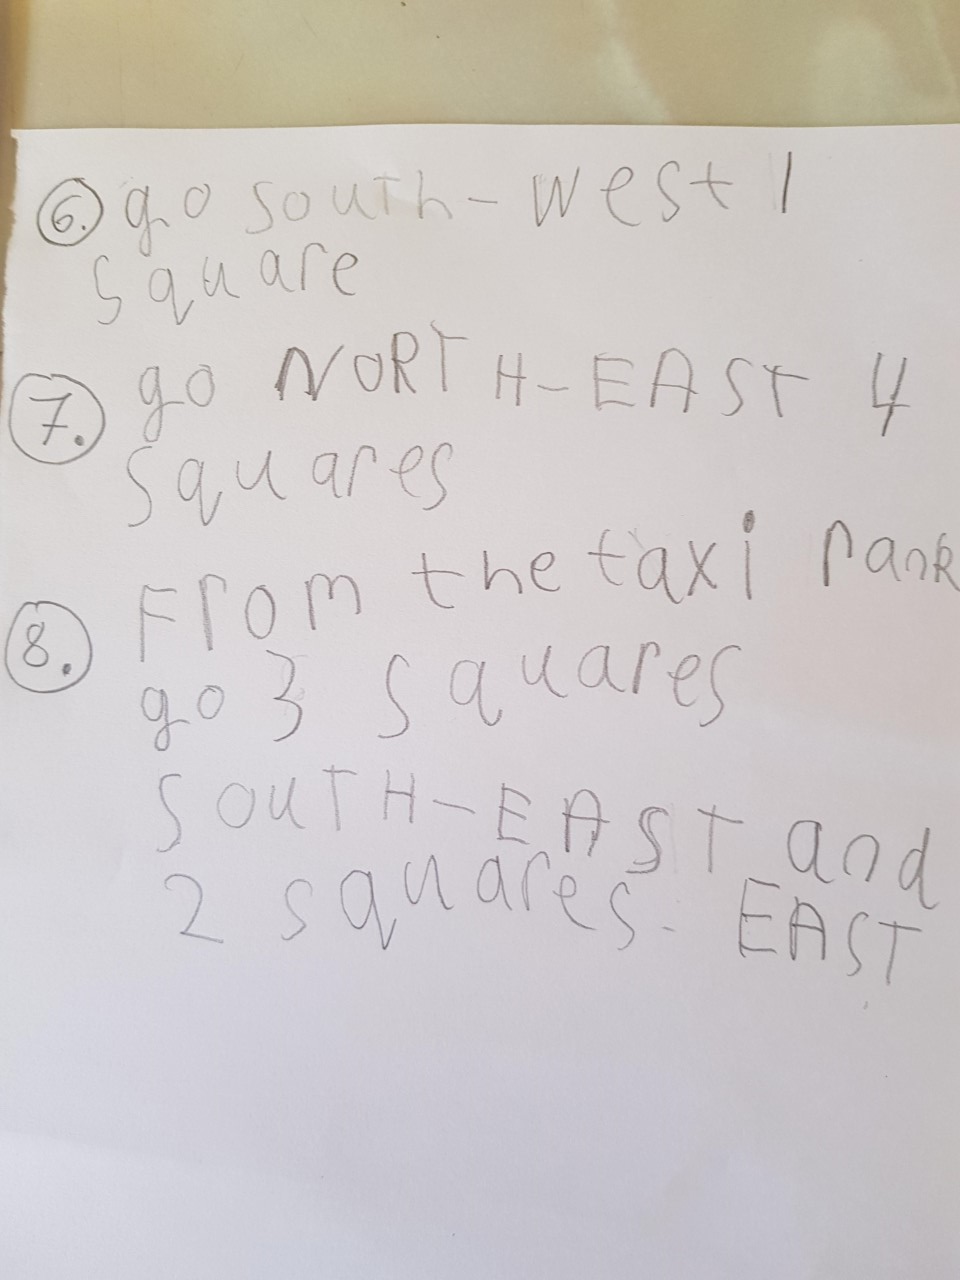 6. go south-west 1
square
7. go NORTH-EAST 4
squares
8. From the taxi rank
go 3 squares
SOUTH-EAST and
2 squares. EAST